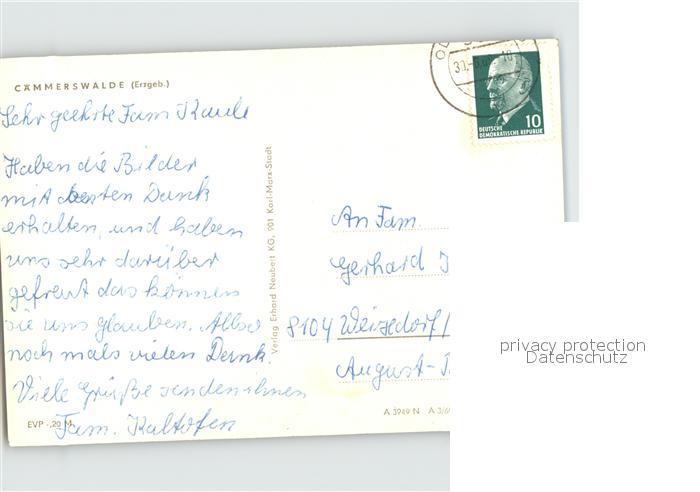 CÄMMERSWALDE (Erzgeb.)
Sehr geehrte Fam. Kaule
Haben die Bilder
mit besten Dank
erhalten, und haben
uns sehr darüber
gefreut das können
sie uns glauben. Also
noch mals vielen Dank.
Viele Grüße senden ihnen
Fam. Kaltofen
EVP -,20 M
Verlag Erhard Neubert KG, 901 Karl-Marx-Stadt
10
DEUTSCHE
DEMOKRATISCHE REPUBLIK
An Fam.
Gerhard
8104 Weixdorf/
August-
A 3949 N
privacy protection
Datenschutz